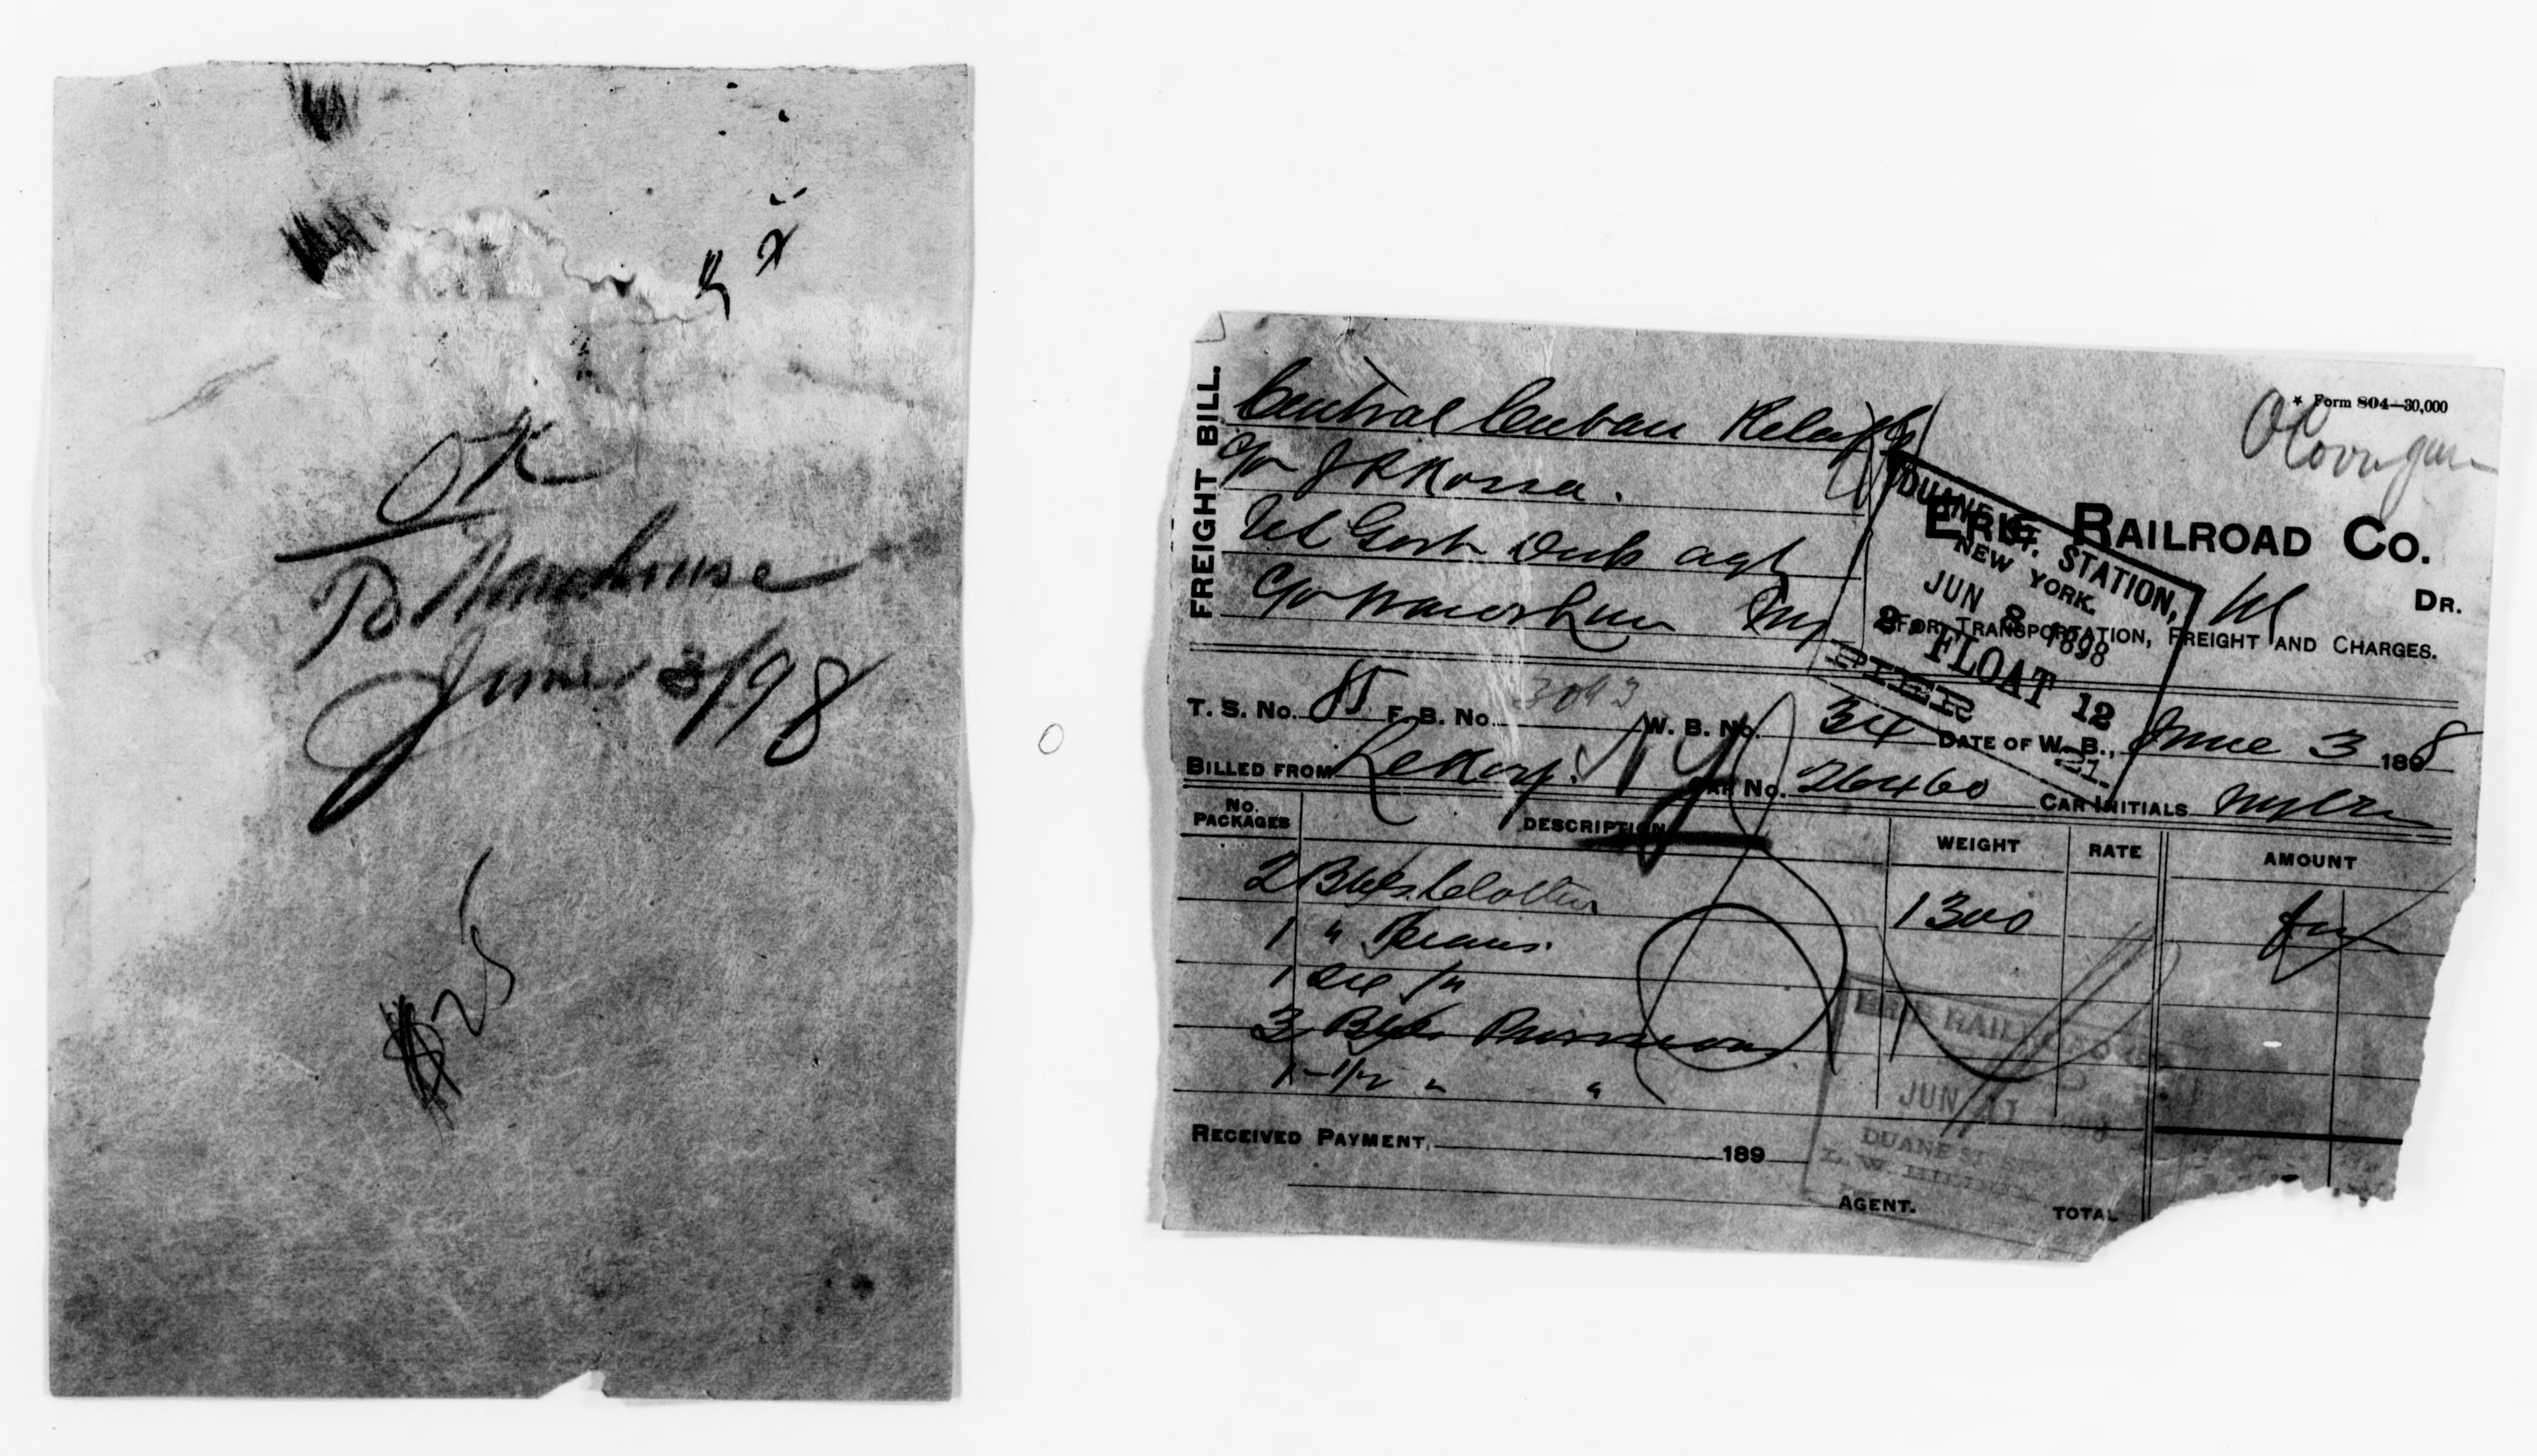 OK
To Warehouse
June 8/98
25
FREIGHT BILL.
Central Cuban Relief
c/o J R
US Govt Desp agt
c/o NY
★ Form 804—30,000
ERIE RAILROAD CO.
DR.
FOR TRANSPORTATION, FREIGHT AND CHARGES.
DUANE ST. STATION,
NEW YORK.
JUN 8 1898
FLOAT 12
PIER 21
T. S. No. 85 F. B. No. 3093 W. B. No. 34 DATE OF W. B., June 3 1898
BILLED FROM LeRoy. NY CAR No. 26460 CAR INITIALS
No. PACKAGES DESCRIPTION WEIGHT RATE AMOUNT
2 Bbls. Clothing 1300
1 " Beans.
1
3 Bbls Provisions
1-1/2 " "
ERIE RAILROAD
JUN 11
DUANE ST.
RECEIVED PAYMENT, 189
AGENT. TOTAL